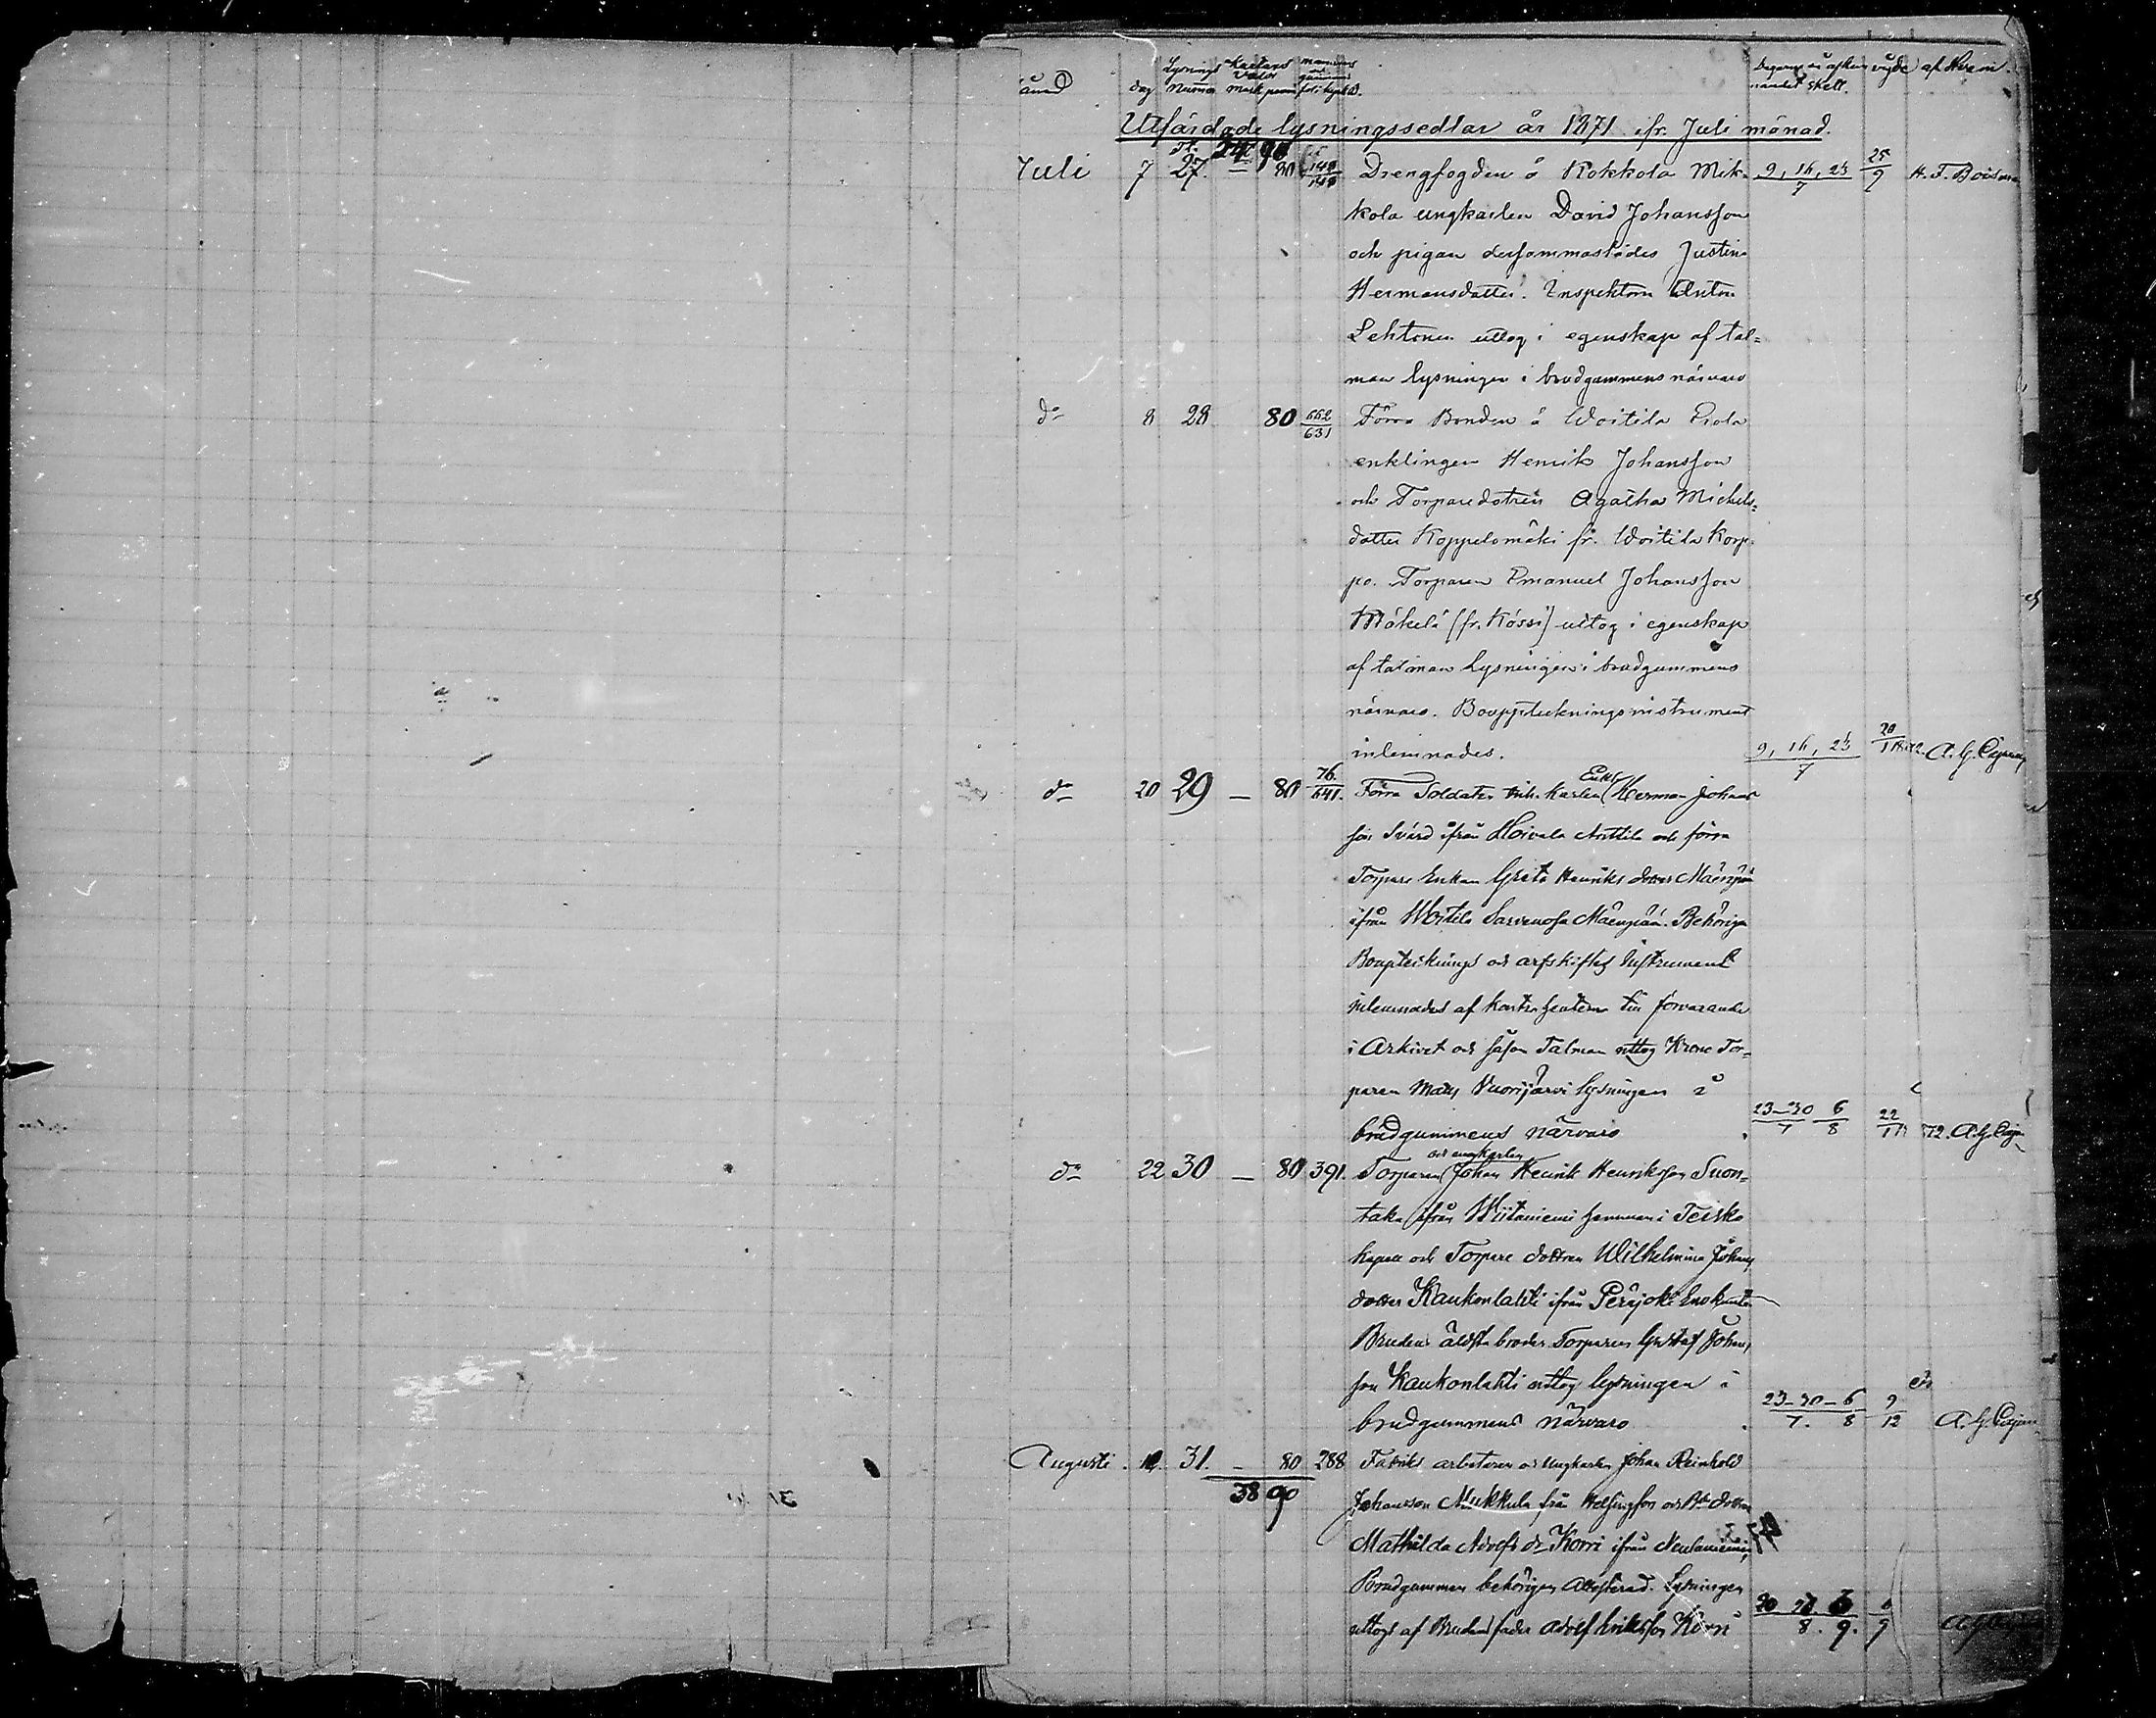 månad dag Lysnings Numer Kartans Valör Mark penni
Dagarne då afkunnandet skett. vigde af Hvem.
Utfärdade lysningssedlar år 1871 ifr. Juli månad.
Tr. 24 90
Juli 7 27. — 80 Drengfogden å Kokkola Mik- 9, 16, 23/7 25/9 H. F. Boisman
kola ungkarlen David Johansson
och pigan dersammastädes Justina
Hermansdotter. Inspektorn Anton
Lehtonen uttog i egenskap af tal=
man lysningen i brudgummens närvaro
do 8 28 80 662/631 Förra Bonden å Woitila Piola
enklingen Henrik Johansson
och Torparedotren Agatha Michels=
dotter Koppelomäki fr. Woitila Korp-
po. Torparen Emanuel Johansson
Mäkelä (fr. Kössi) uttog i egenskap
af talman Lysningen i brudgummens
närvaro. Bouppteckningsinstrument
inlemnades. 9, 16, 23/7 20/1 1872. A. G.
do 20 29 — 80 76./641. Förra Soldaten Enkl. Herman Johans
son Svärd ifrån Hoivala Anttila och förra
Torpare Enkan Greta Henriks dotter Mäenpää
ifrån Woitila Sarvenoja Mäenpää. Behöriga
Boupptecknings och arfskiftes Instrument
inlemnades af kontrahenterna till förvarande
i Arkivet och såsom Talman uttog Krono Tor-
paren Mats Vuorijärvi lysningen i
brudgummens närvaro 23–30/7 6/8 22/1 1872. A. G.
och ungkarlen
do 22 30 — 80 391. Torparen Johan Henrik Henriksson Suon=
taka ifrån Wiitaniemi hemman i Teisko
kapell och Torpare dottren Wilhelmina Johans
dotter Kaukonlahti ifrån Perijoki Enokunta
Brudens äldsta broder Torparen Gustaf Johans
son Kaukonlahti uttog lysningen i
brudgummens närvaro 23–30–6/7. 8 9/12 A. G.
Augusti 31. — 80 288 Fabriks arbetaren och Ungkarlen Johan Reinhold
38 90 Johansson Mukkula från Helsingfors och Bde dottren
Mathilda Adolfs dr Korri ifrån Neulaniemi,
Brudgummen behörigen attesterad. Lysningen
uttogs af Brudens fader Adolf Eriksson Korri 8. 9. 9